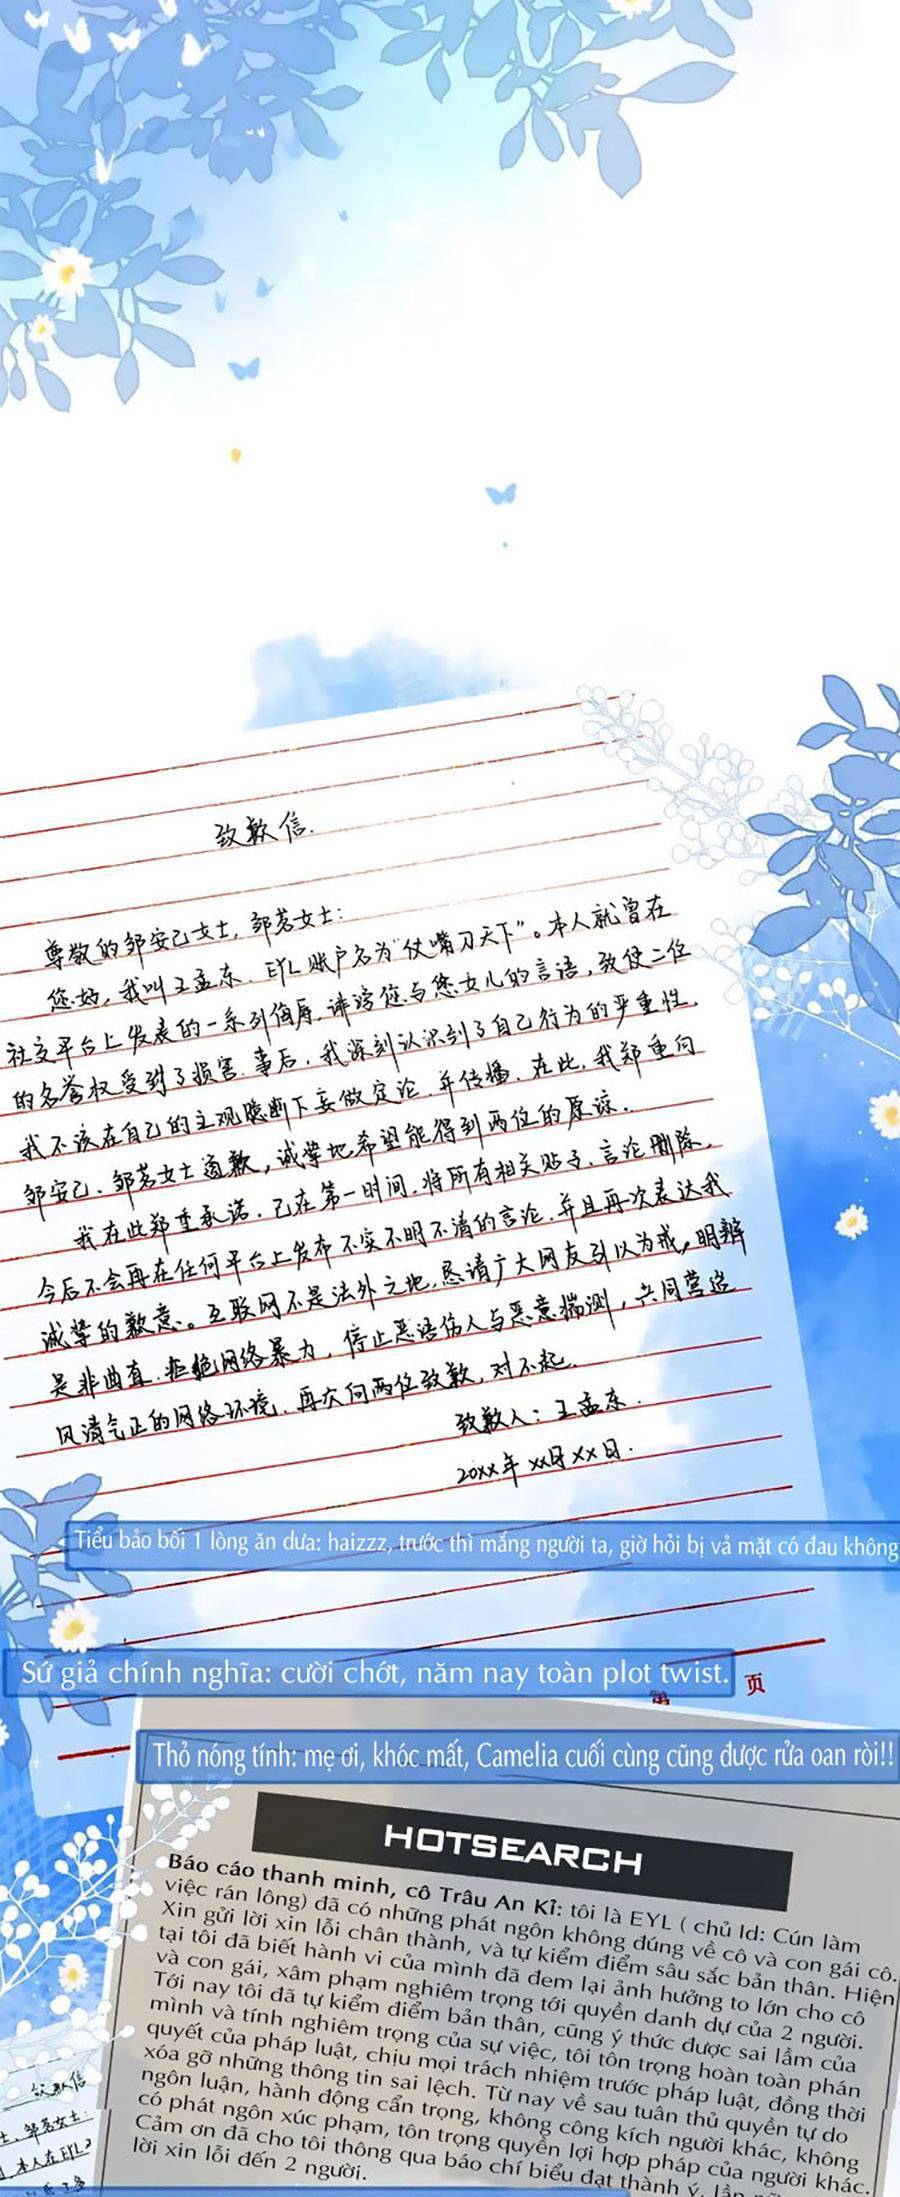 致歉信.
尊敬的邹安己女士, 邹茗女士:
您好, 我叫王孟东. EYL账户名为"仗嘴刃天下"。本人就曾在
社交平台上发表的一系列侮辱, 诽谤您与您女儿的言语, 致使二位
的名誉权受到了损害. 事后, 我深刻认识到了自己行为的严重性.
我不该在自己的主观臆断下妄做定论, 并传播. 在此, 我郑重向
邹安己、邹茗女士道歉, 诚挚地希望能得到两位的原谅.
我在此郑重承诺. 已在第一时间, 将所有相关贴子、言论删除.
今后不会再在任何平台上发布不实不明不清的言论. 并且再次表达我
诚挚的歉意。互联网不是法外之地, 恳请广大网友引以为戒, 明辨
是非曲直. 拒绝网络暴力, 停止恶语伤人与恶意揣测, 共同营造
风清气正的网络环境. 再次向两位致歉, 对不起.
致歉人: 王孟东.
20XX年 XX月 XX日.
Tiểu bảo bối 1 lòng ăn dưa: haizzz, trước thì mắng người ta, giờ hỏi bị vả mặt có đau không
Sứ giả chính nghĩa: cười chớt, năm nay toàn plot twist.
第 页
Thỏ nóng tính: mẹ ơi, khóc mất, Camelia cuối cùng cũng được rửa oan ròi!!
HOTSEARCH
Báo cáo thanh minh, cô Trâu An Kỉ: tôi là EYL ( chủ Id: Cún làm
việc rán lông) đã có những phát ngôn không đúng về cô và con gái cô.
Xin gửi lời xin lỗi chân thành, và tự kiểm điểm sâu sắc bản thân. Hiện
tại tôi đã biết hành vi của mình đã đem lại ảnh hưởng to lớn cho cô
và con gái, xâm phạm nghiêm trọng tới quyền danh dự của 2 người.
Tới nay tôi đã tự kiểm điểm bản thân, cũng ý thức được sai lầm của
mình và tính nghiêm trọng của sự việc, tôi tôn trọng hoàn toàn phán
quyết của pháp luật, chịu mọi trách nhiệm trước pháp luật, đồng thời
xóa gỡ những thông tin sai lệch. Từ nay về sau tuân thủ quyền tự do
ngôn luận, hành động cẩn trọng, không công kích người khác, không
có phát ngôn xúc phạm, tôn trọng quyền lợi hợp pháp của người khác.
Cảm ơn đã cho tôi thông qua báo chí biểu đạt thành ý, lần
lời xin lỗi đến 2 người.
致歉信
邹茗女士:
本人在EYL